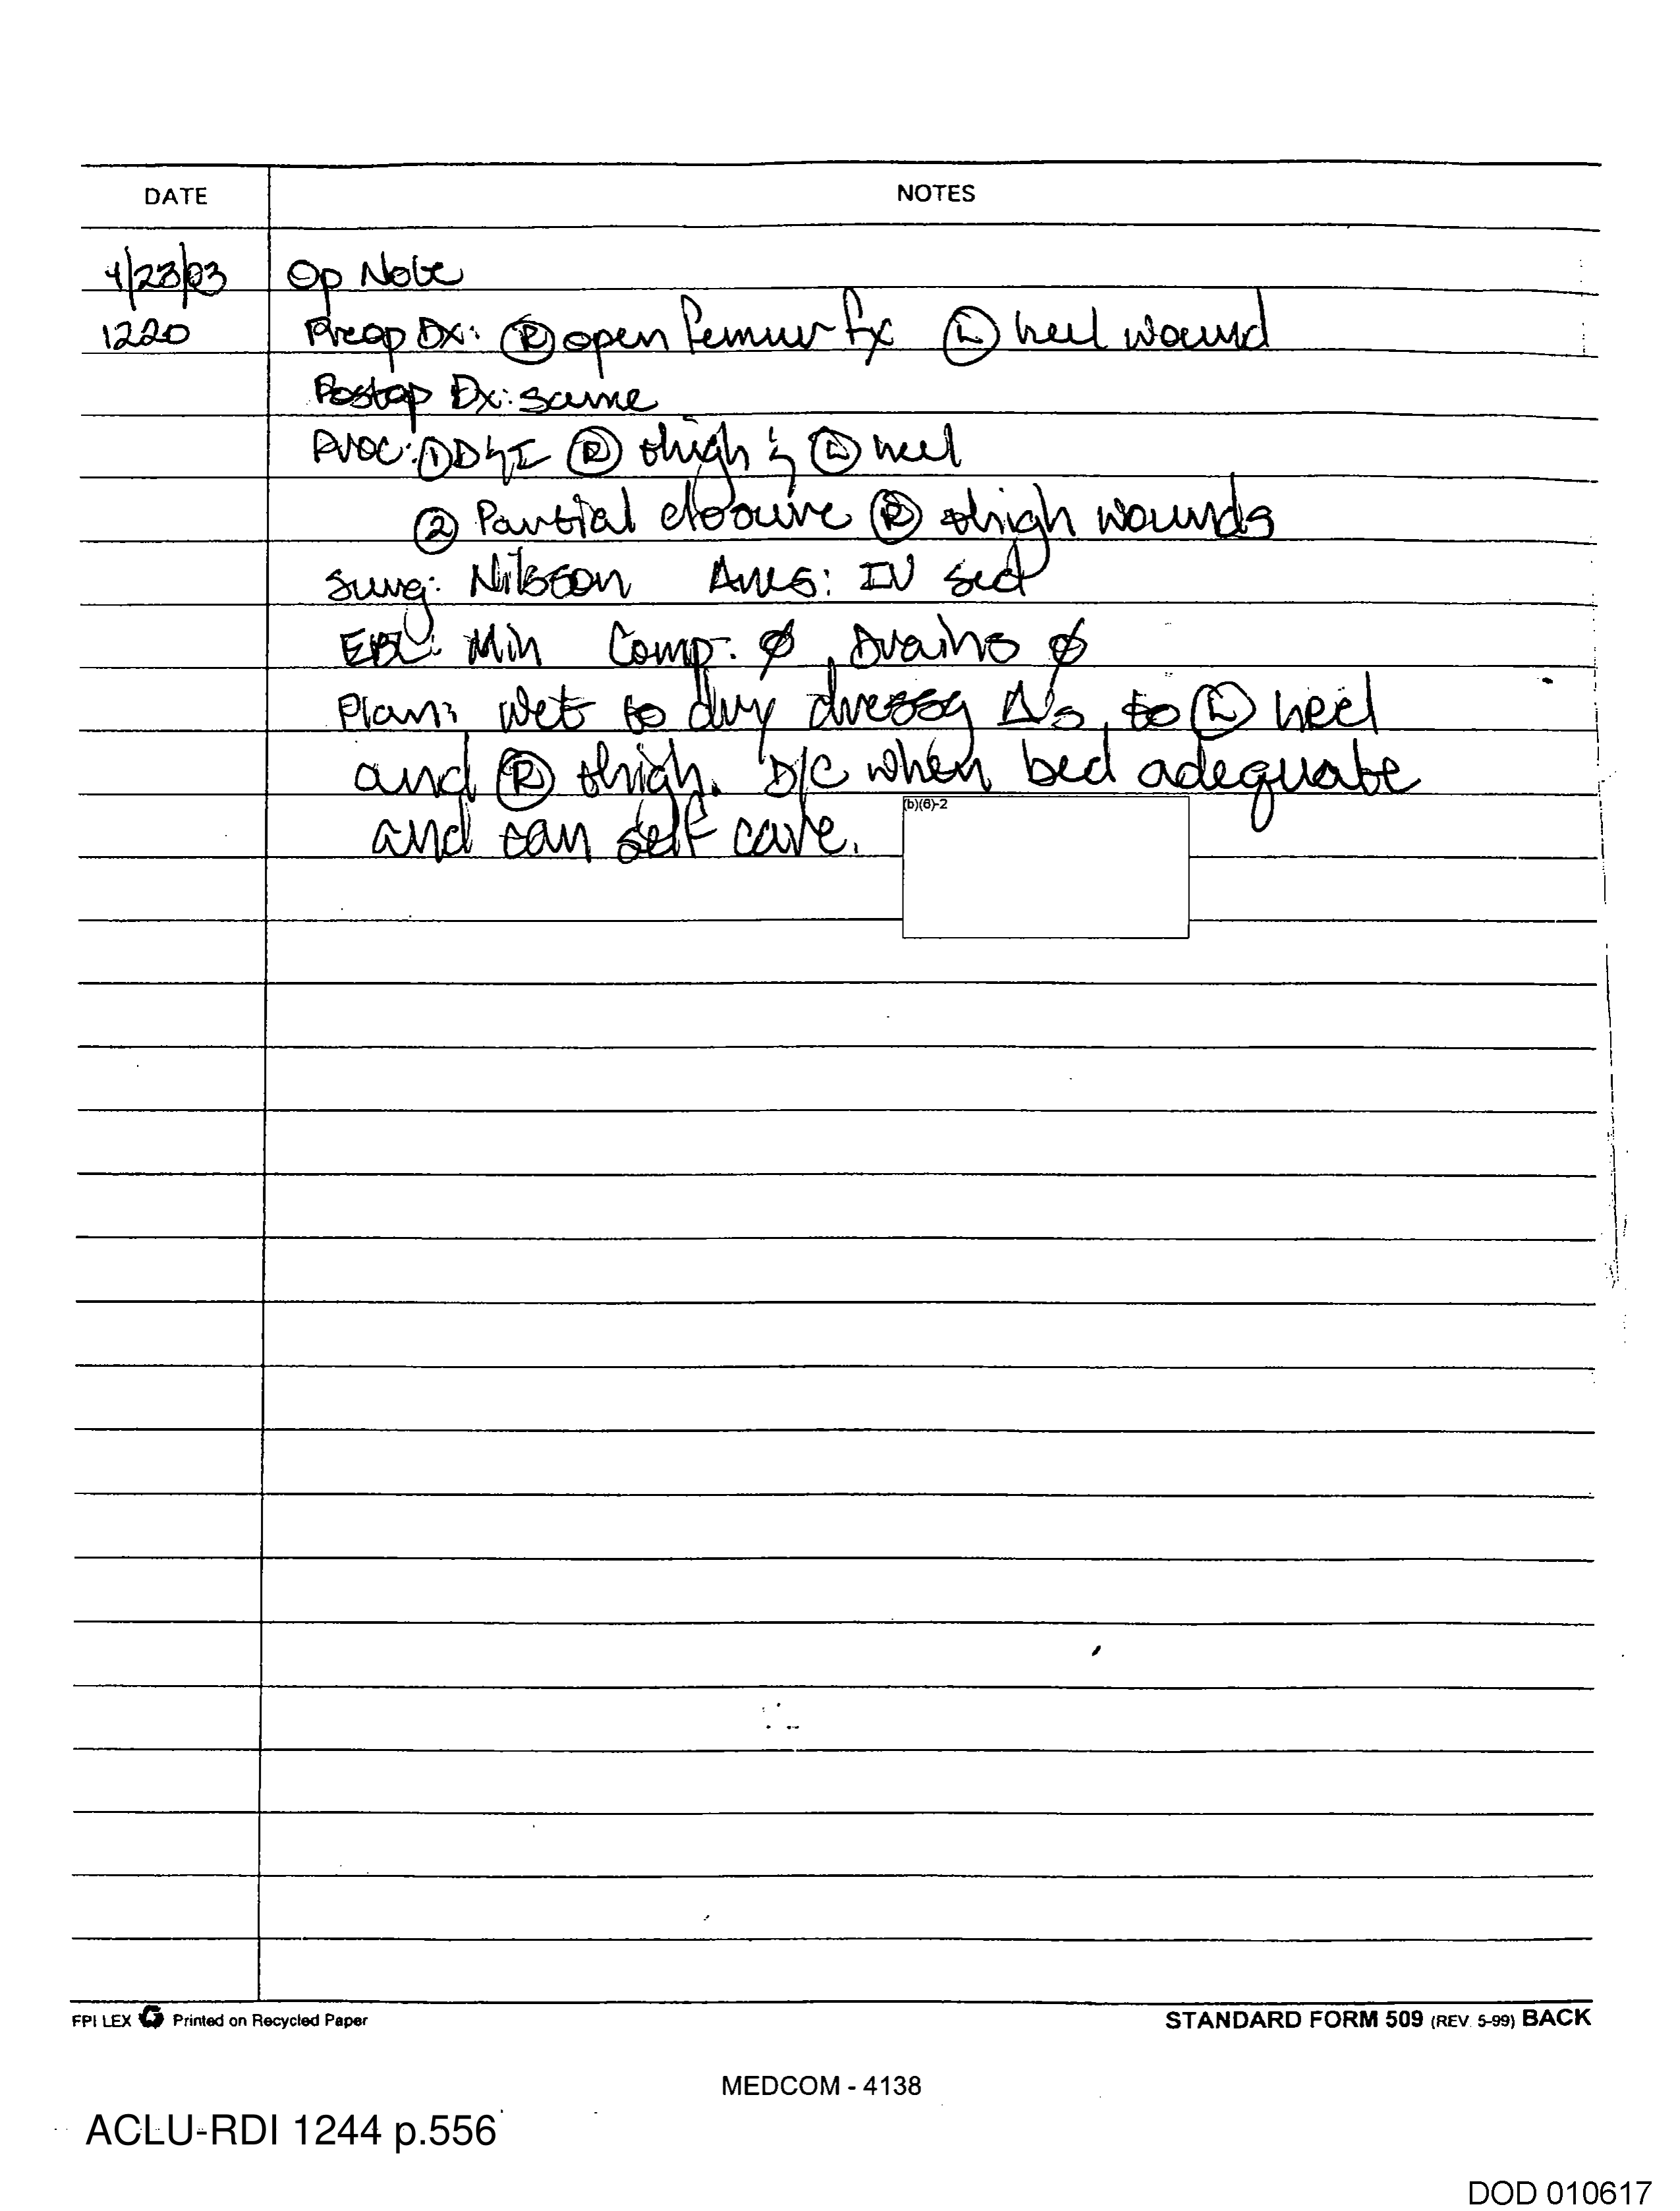 DATE NOTES
4/23/03 Op Note
1220 Preop Dx: Ⓡ open femur fx Ⓛ heel wound
Postop Dx: same
Proc: ① D&I Ⓡ thigh & Ⓛ heel
② Partial closure Ⓡ thigh wounds
Surg: Nilsson Anes: IV sed
EBL: Min Comp: ∅, Drains ∅
Plan: Wet to dry dressg Δ's to Ⓛ heel
and Ⓡ thigh. D/C when bed adequate
and can self care.
(b)(6)-2
FPI LEX Printed on Recycled Paper STANDARD FORM 509 (REV. 5-99) BACK
MEDCOM - 4138
ACLU-RDI 1244 p.556
DOD 010617